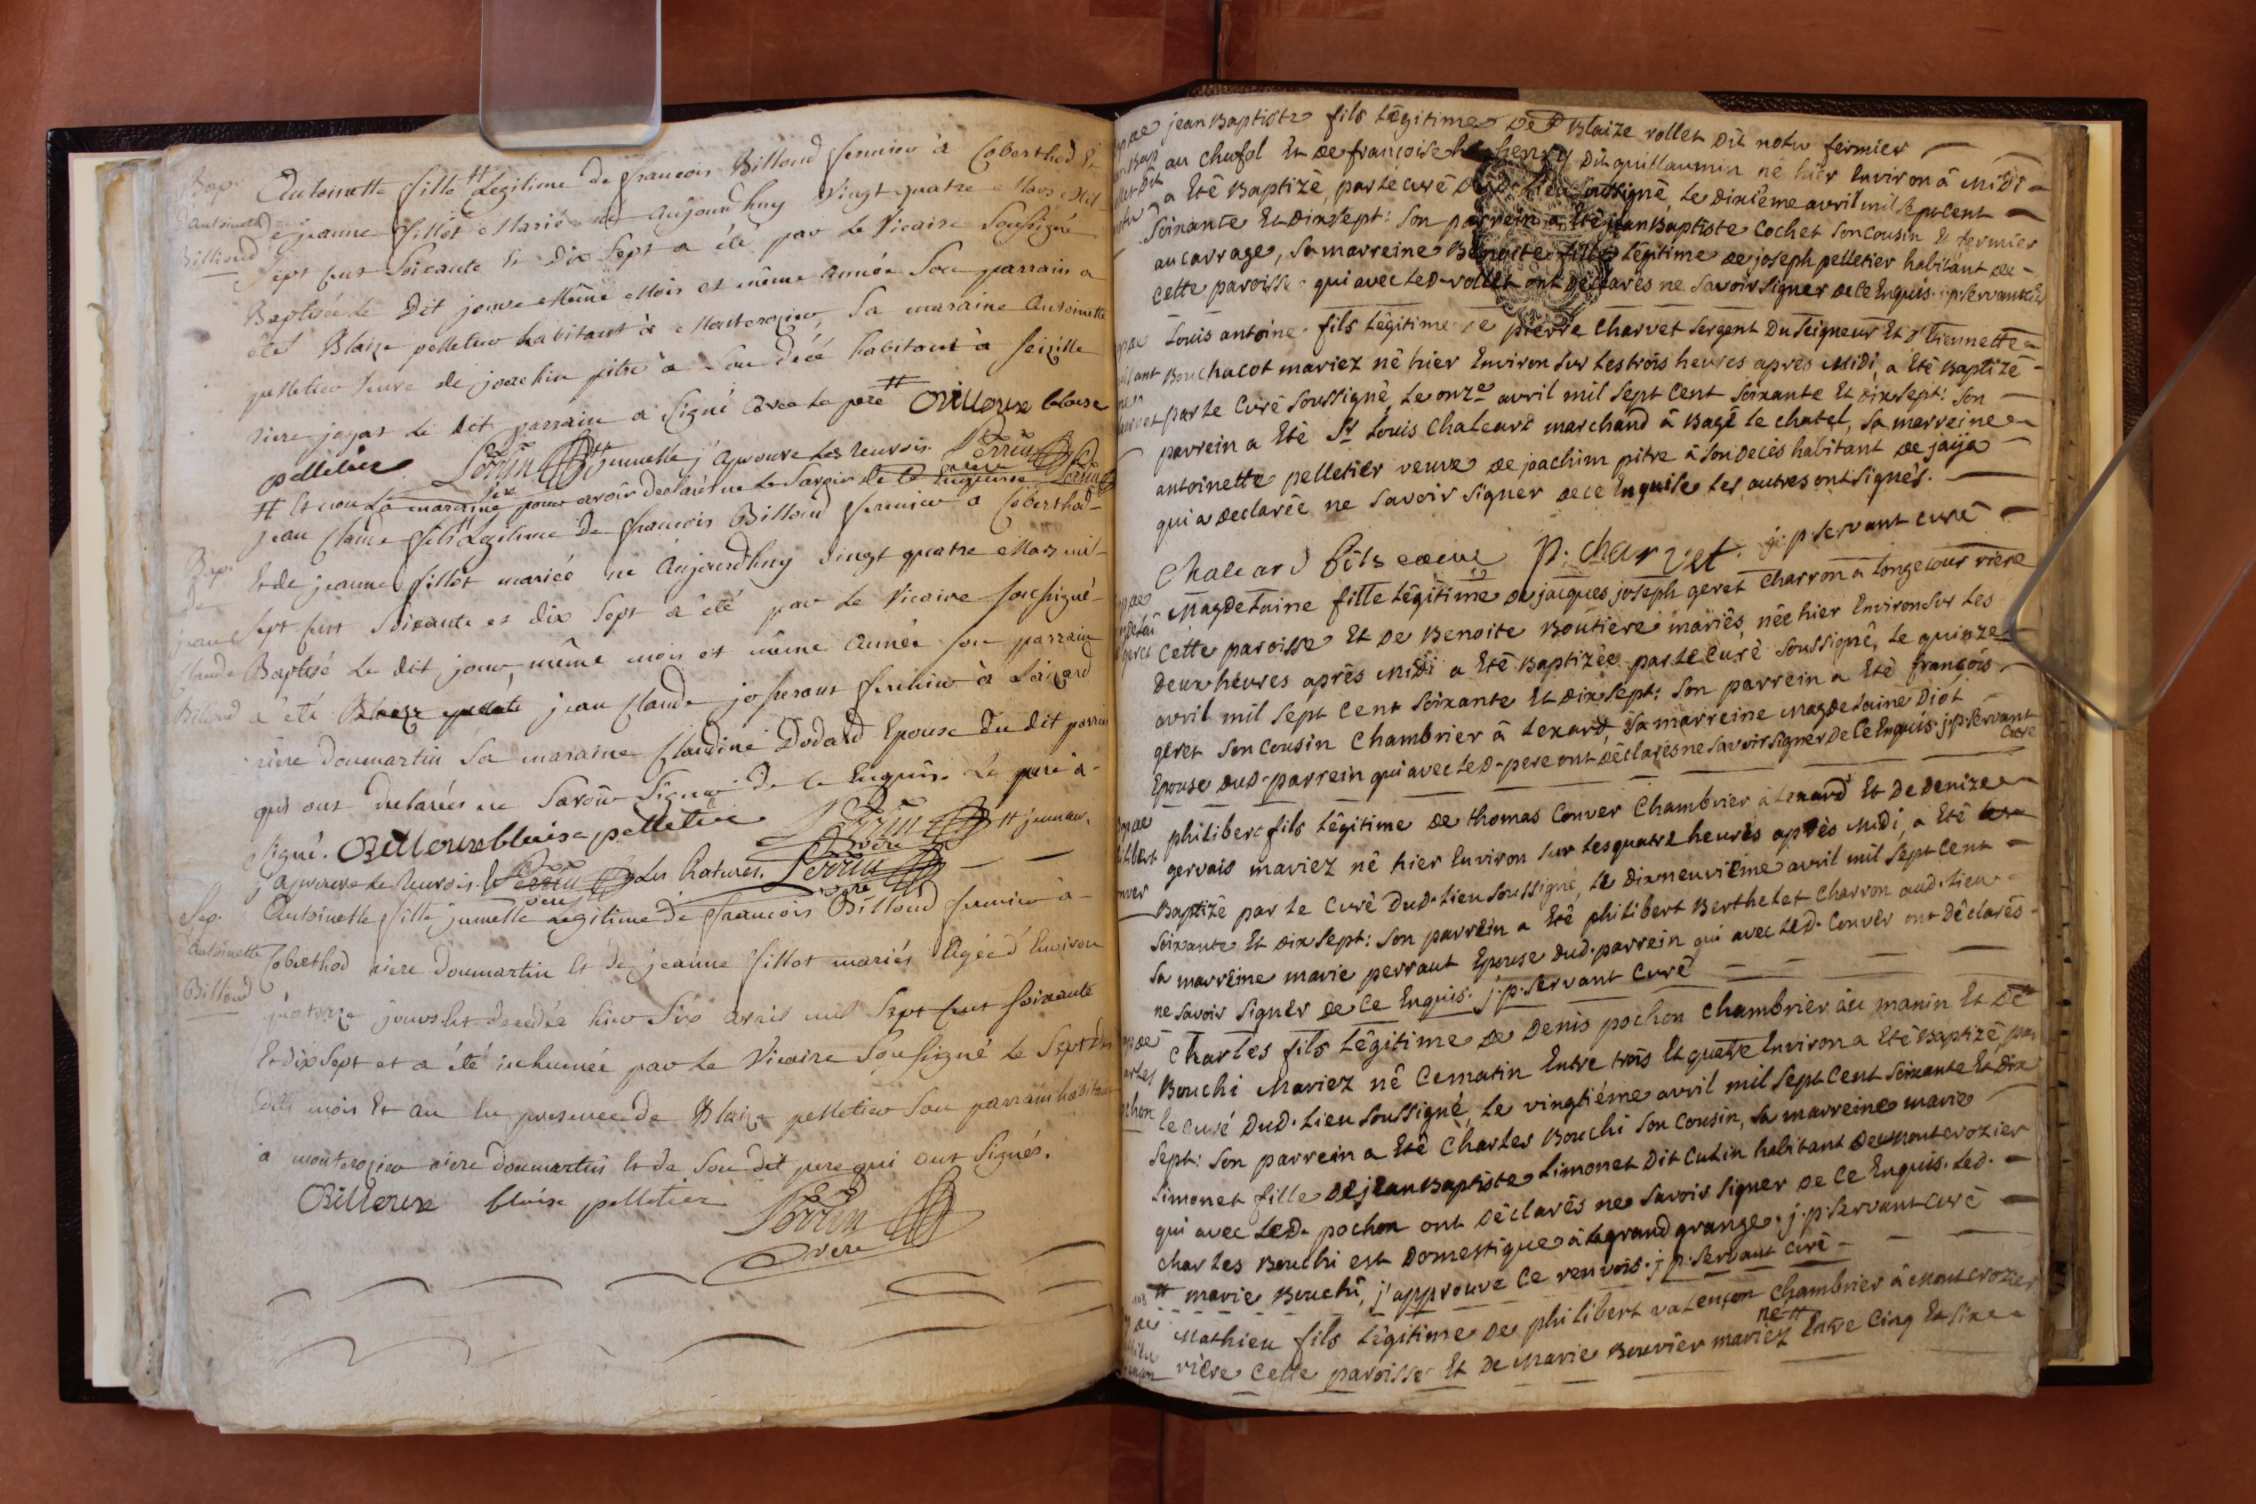 Bap.
Antoinette fille # Légitime de françois Billoud fermier à Coberthod Et
Antoinette
Billioud
de jeanne fillot Mariés née aujourdhuy vingt quatre Mars Mil
Sept cent soixante Et Dix Sept a été par le Vicaire Soussigné
Baptisée le Dit jour Même Mois et même année Son parrain a
été Blaize pelletier habitant à Montcrozier, Sa maraine Antoinette
pelletier veuve de joachin pitre à Son décé habitant à
riere jayat le dit parrain a Signé avec le pere # Billoux blaise
pelletier Perrin # jumelle j'aprouve les renvois. Perrin
# Et non la maraine pour avoir declaré ne le Savoir de ce Enquise
Bap.
de
jean Claude fils Légitime De françois Billoud fermier a Coberthod
Et de jeanne fillot mariés né Aujourdhuy vingt quatre Mars mil
jean
Sept Cent Soixante et dix Sept a été par le Vicaire Soussigné
Claude
Baptisé le dit jour, même mois et même année son parrain
Billoud
a été jean Claude joserant fermier à Laizard
rière doumartin Sa maraine Claudine Dodard Epouse du dit parrain
qui ont declarés ne Savoir Signer de ce Enquis. Le pere a
signé. Billoux blaise pelletier Perrin # jumeau.
j'approuve le renvois. Perrin Les Ratures. Perrin
Sep.
Antoinette fille jumelle legitime de françois Billoud fermier à
Antoinette
Coberthod riere doumartin Et de jeanne fillot mariés Agée d'Environ
Billoud
quatorze jours Est decedée hier Six avril mil Sept Cent Soixante
Et dix Sept et a été inhumée par le Vicaire Soussigné le Sept des
dits mois Et an En presence de Blaize pelletier Son parrain habitant
à montcrozier riere doumartin Et de Son dit pere qui ont Signés.
Billoux blaise pelletier Perrin
vire
jean Baptiste fils Légitime De Blaize rollet Dit notu fermier
au chafol Et De françoise henry Dit guillaumin né hier Environ à Midi
a Eté Baptizé, par le curé Dud. Lieu Soussigné, Le Dixiême avril mil Sept Cent
Soixante Et Dixsept: Son parrein a Eté jean Baptiste Cochet Son cousin Et fermier
au carrage, Sa marreine Benoite fille Légitime de joseph pelletier habitant de
cette paroisse qui avec Led. rollet ont Déclarés ne Savoir Signer De Ce Enquis. j. p. Servant Curé
Louis antoine fils Légitime de pierre Charvet Sergent Du Seigneur Et d'Etiennette
Bouchacot mariez né hier Environ Sur Les trois heures aprés Midi, a Eté Baptizé
par Le Curé Soussigné, Le onze avril mil Sept Cent Soixante Et Dixsept: Son
parrein a Eté Sr Louis Chaleard marchand à Bagé le chatel, Sa marreine
antoinette pelletier veuve de joachim pitre à Son Decés habitant de jaija
qui a Declarée ne Savoir Signer de ce Enquise Les autres ont Signés.
Chaleard fils P. Charvet. j. p. Servant curé
Magdelaine fille Légitime De jacques joseph geret Charron à Longecour riere
cette paroisse Et De Benoite Boutiere mariés, née hier Environ Sur Les
Deux heures aprés Midi a Eté Baptizée par Le Curé Soussigné, Le quinze
avril mil Sept Cent Soixante Et Dixsept: Son parrein a Eté françois
geret Son cousin Chambrier à Lexard, Sa marreine Magdelaine Diot
Epouse Dud. parrein qui avec Led. pere ont Déclarés ne Savoir Signer De Ce Enquis. j. p. Servant
Curé
philibert fils Légitime De thomas Conver Chambrier à Lexard Et De Denize
gervais mariez né hier Environ Sur Les quatre heures aprés Midi, a Eté
Baptizé par Le Curé Dud. Lieu Soussigné, Le Dixneuviême avril mil Sept Cent
Soixante Et Dix Sept: Son parrein a Eté philibert Berthelet Charron aud. Lieu
Sa marreine marie perraut Epouse Dud. parrein qui avec Led. Conver ont Déclarés
ne Savoir Signer De Ce Enquis. j. p. Servant Curé
Charles fils Légitime De Denis pochon Chambrier au manin Et De #
Bouchi Mariez né Cematin Entre trois Et quatre Environ a Eté Baptizé, par
Le Curé Dud. Lieu Soussigné, Le vingtiéme avril mil Sept Cent Soixante Et Dix
Sept: Son parrein a Eté Charles Bouchi Son Cousin, Sa marreine marie
Limonet fille De jean Baptiste Limonet Dit Cutin habitant De Montcrozier
qui avec Led. pochon ont Déclarés ne Savoir Signer De Ce Enquis. Led.
Charles Bouchi est Domestique à La grand grange. j. p. Servant Curé
# marie Bouchi, j'approuve Ce renvois. j. p. Servant Curé
Mathieu fils Légitime De philibert valençon Chambrier à Montcrozier
né #
rière Cette paroisse Et De Marie Bouvier mariez Entre Cinq Et Six